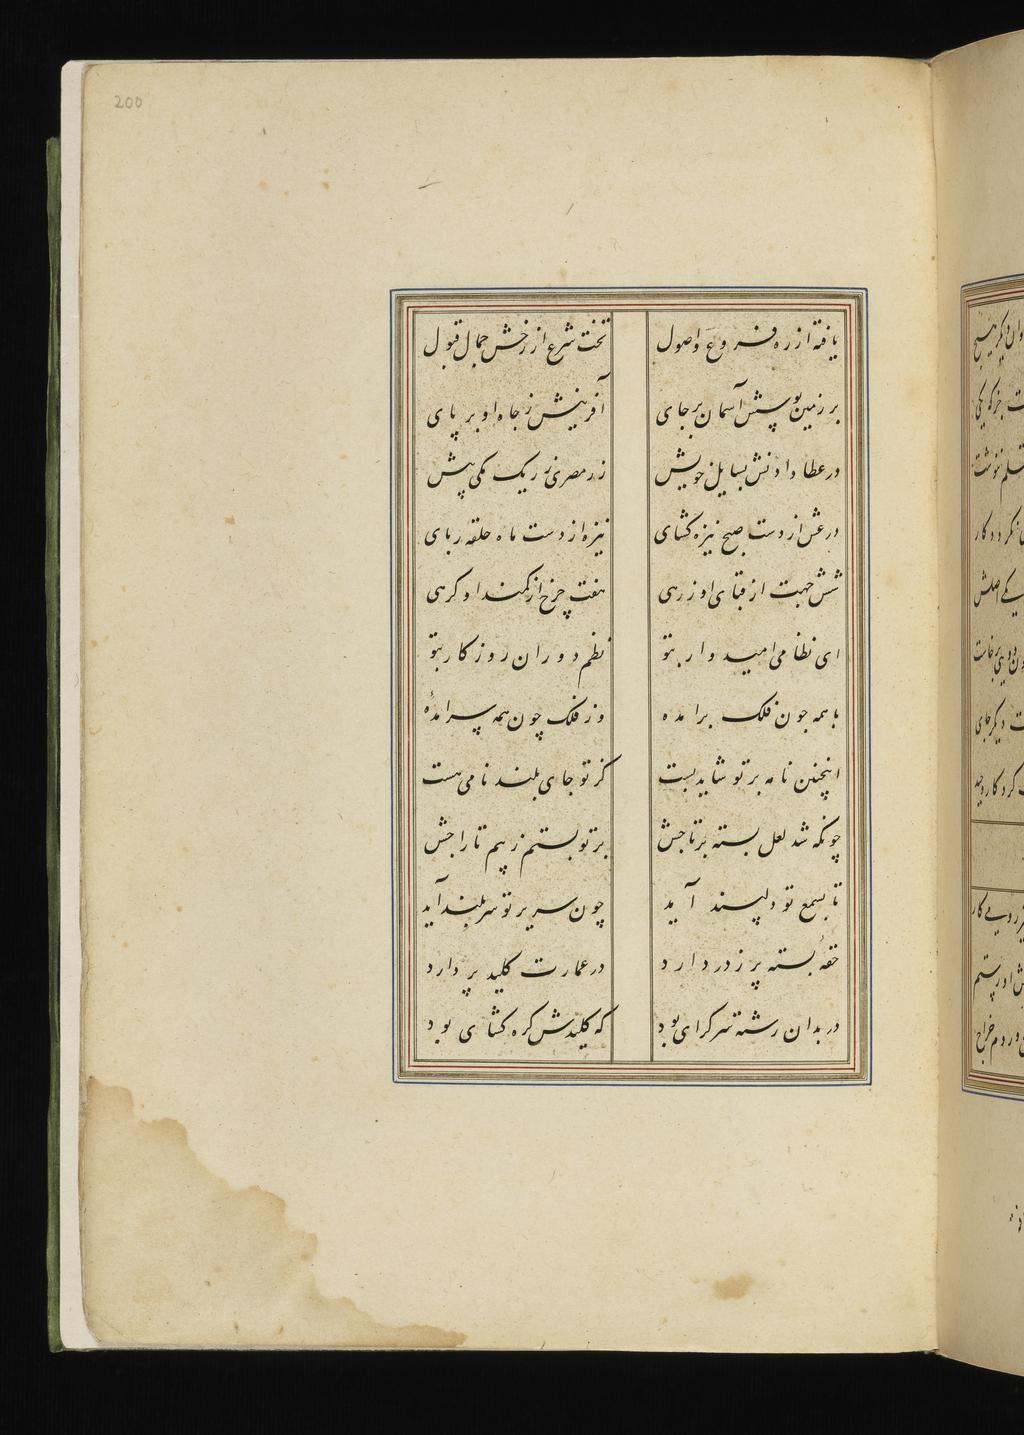 200
یافته از ره فروع و اصول تخت شرع از رخش جمال قبول
بر زمین بوسش آسمان بر جای آفرینش ز جاه او بر پای
در عطا دادنش بسایل خویش زر مصری ز ریک مکی بیش
درعش از دست صبح نیزه کشای نیزه از دست ماه حلقه ربای
شش جهت از قبای او زرهی هفت چرخ از کمند او کرهی
ای نظامی امیدوار بتو نظم دوران روزکار بتو
با همه چون فلک برامده وز فلک چون همه سرامدهٔ
اینچنین نامه بر تو شاید بست کز تو جای بلند نامی هست
چونکه شد لعل بسته بر تاجش بر تو بستم ز بیم تاراجش
تا بسمع تو دلپسند آید چون سریر تو سر بلند آید
حقهٔ بسته پر ز در دارد در عمارت کلید پر دارد
در بدان رشته سر کرای بود که کلیدش کره کشای بود